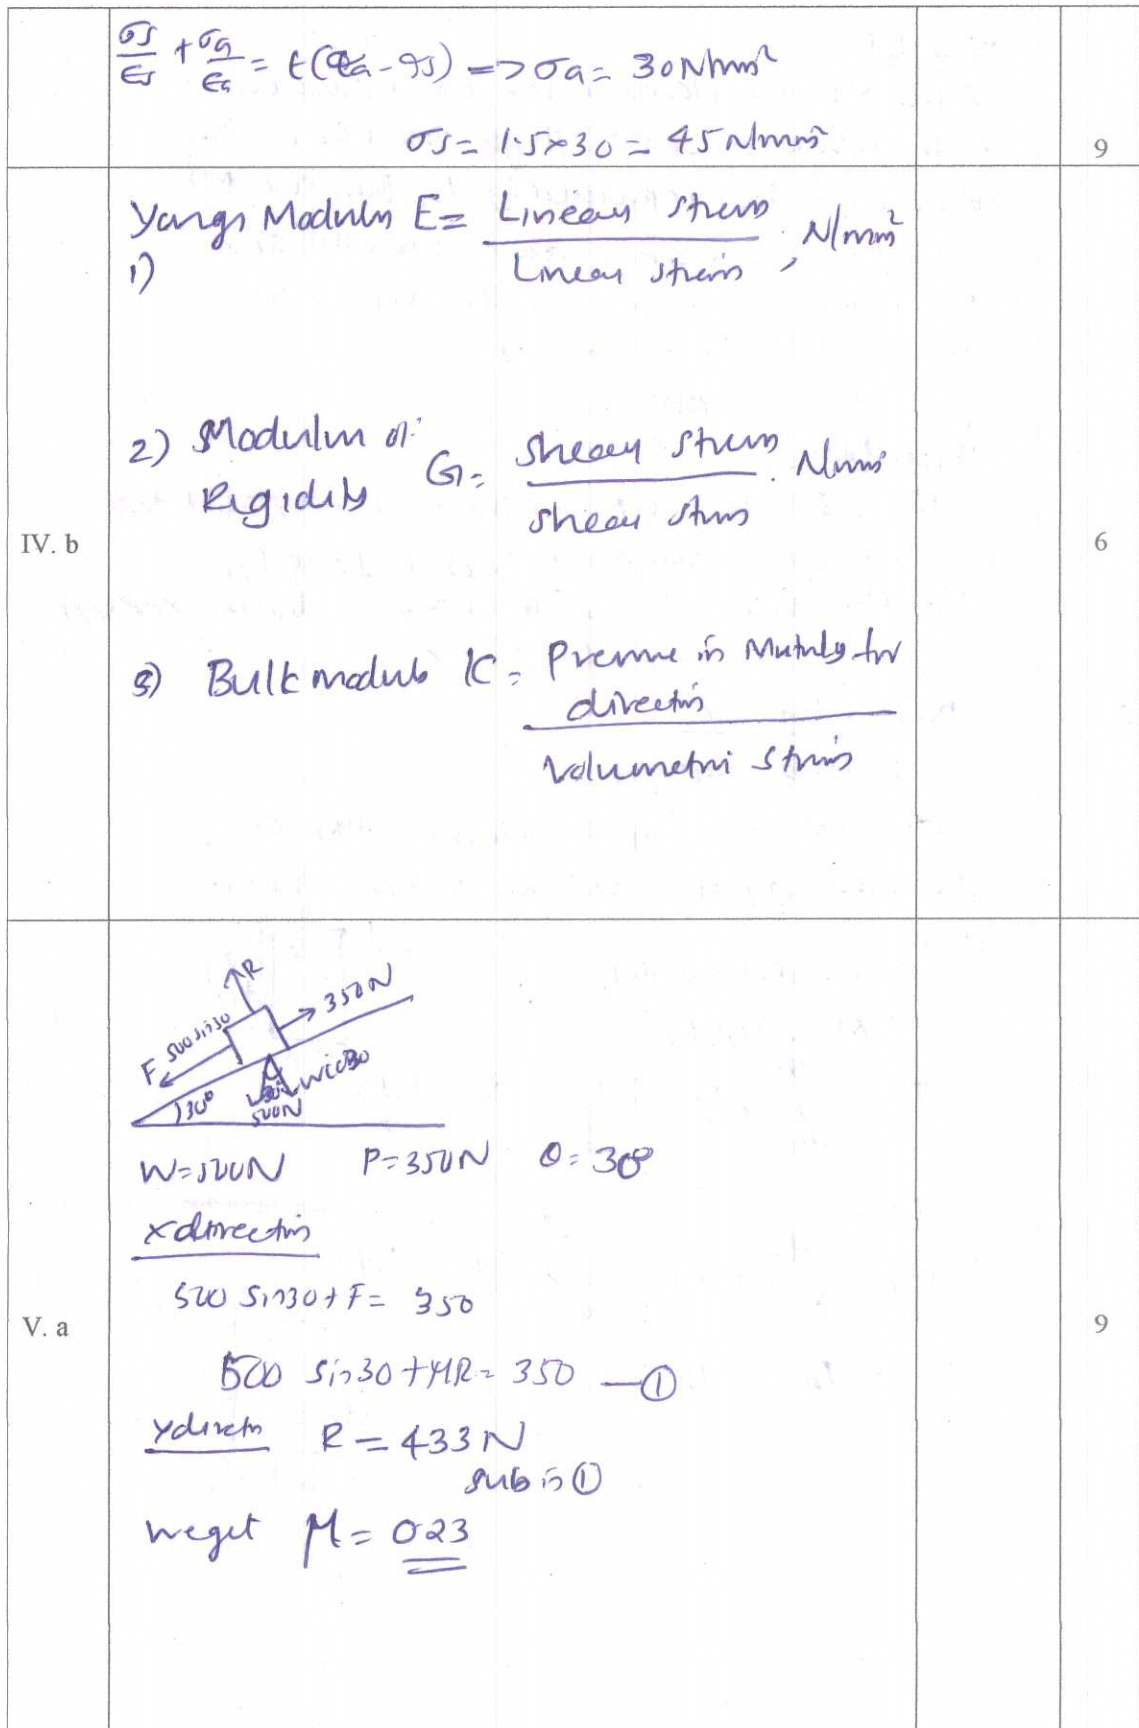 σs/Es + σa/Ea = t(αa - αs) => σa = 30 N/mm²
σs = 1.5 × 30 = 45 N/mm²
9
Yangs Moduln E = Linear stress / Linear strain, N/mm²
1)
2) Modulus of Rigidity G = shear stress / shear strain . N/mm²
IV. b
6
3) Bulk modulus K = Pressure in Mutualy for direction / Volumetric strain
R
350 N
F 500 sin30
30°
W cos30
500N
W = 500N P = 350N θ = 30°
x direction
500 sin30 + F = 350
V. a
9
500 sin 30 + μR = 350 — ①
y directn R = 433 N
sub in ①
we get μ = 0.23